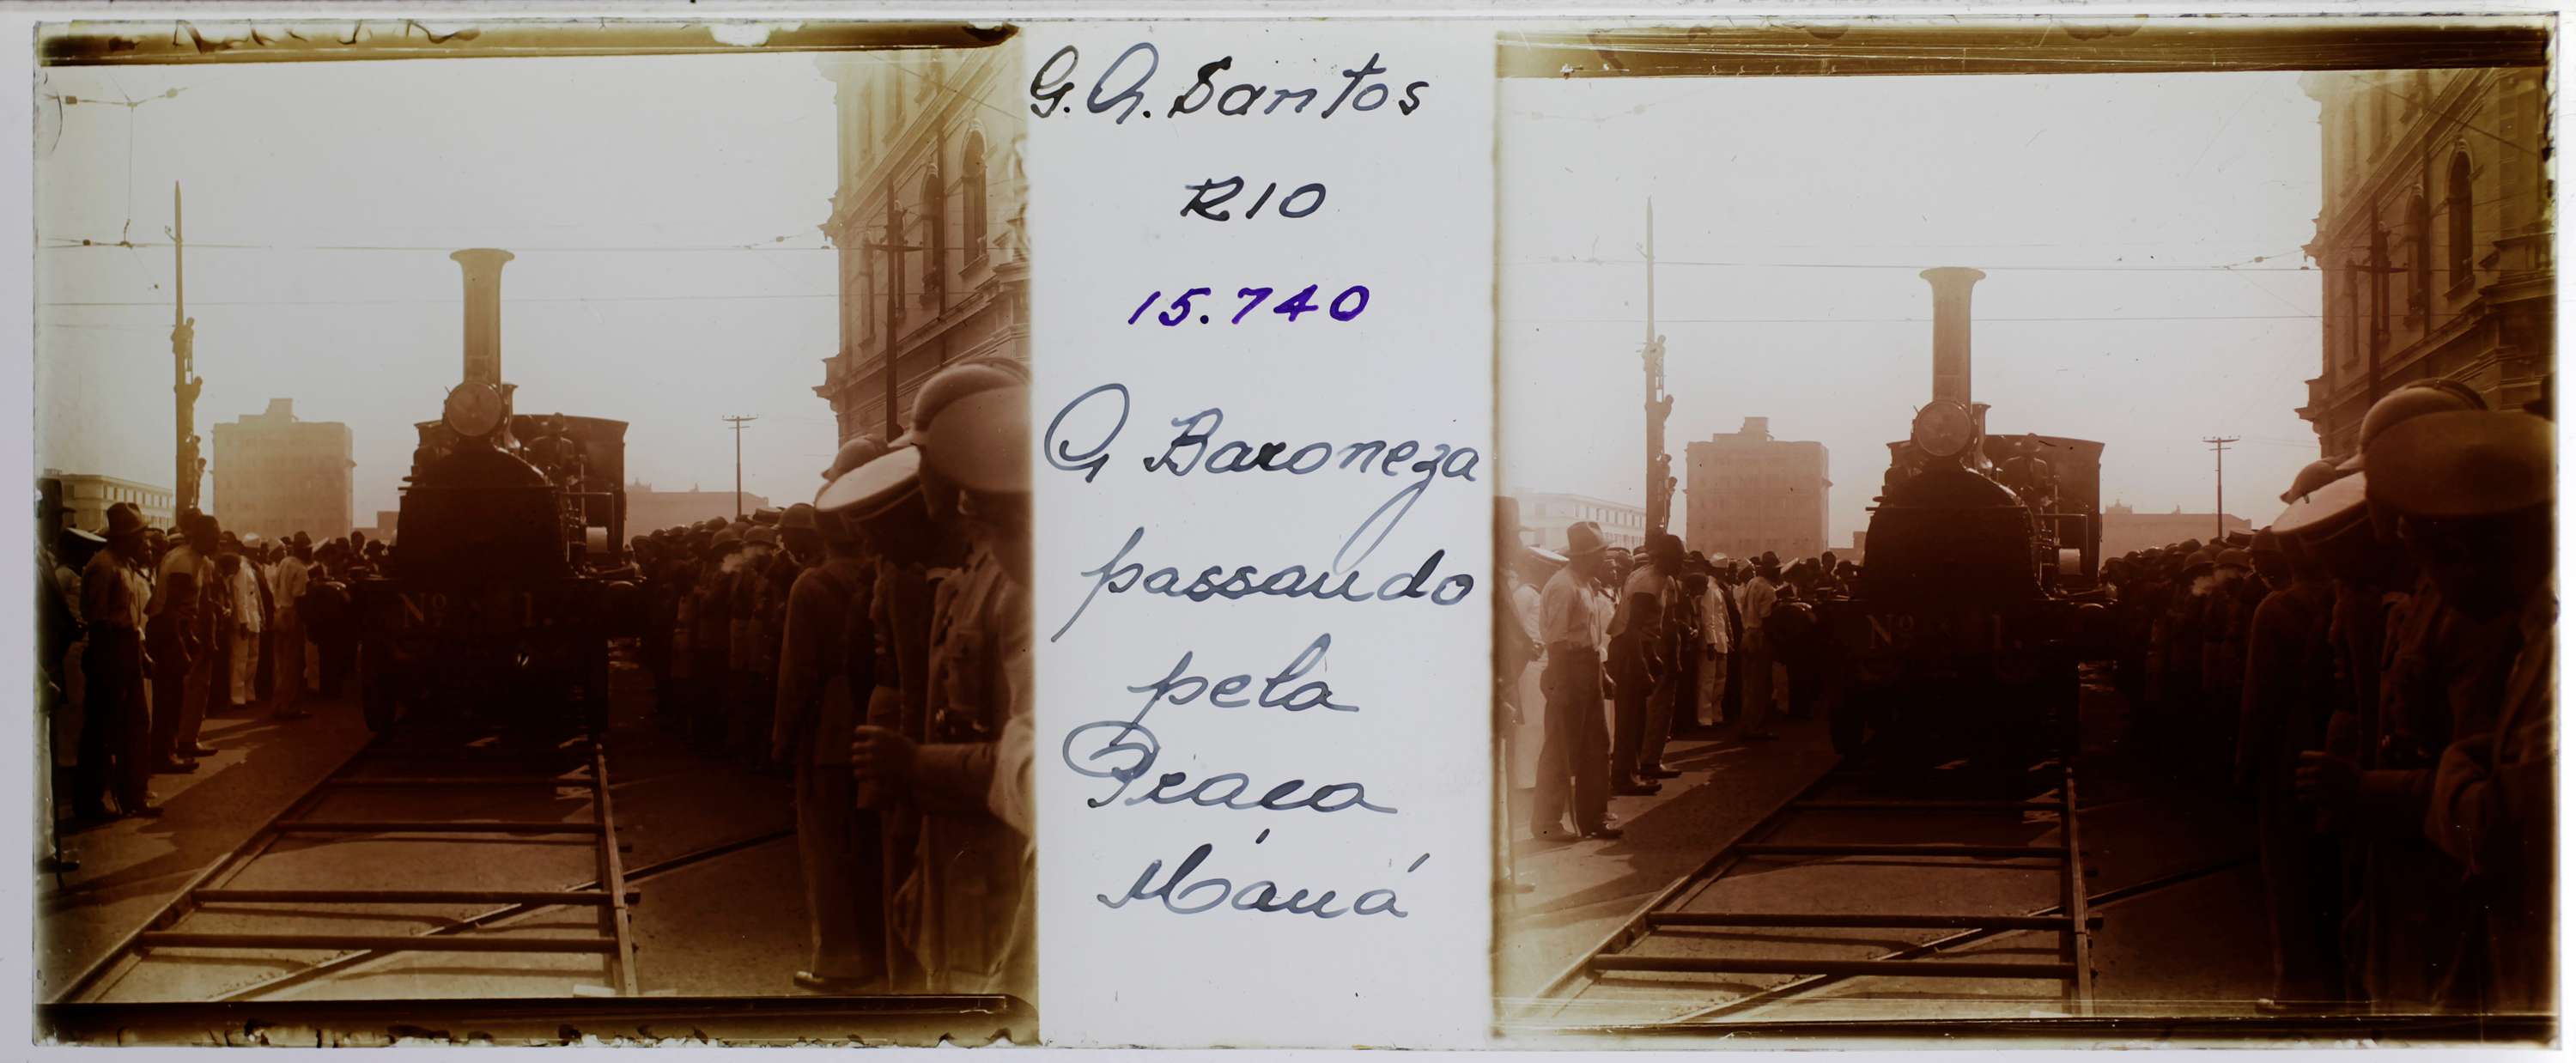 G. A. Santos
RIO
15.740
A Baroneza
passando
pela
Praca
Mauá
Nº 1